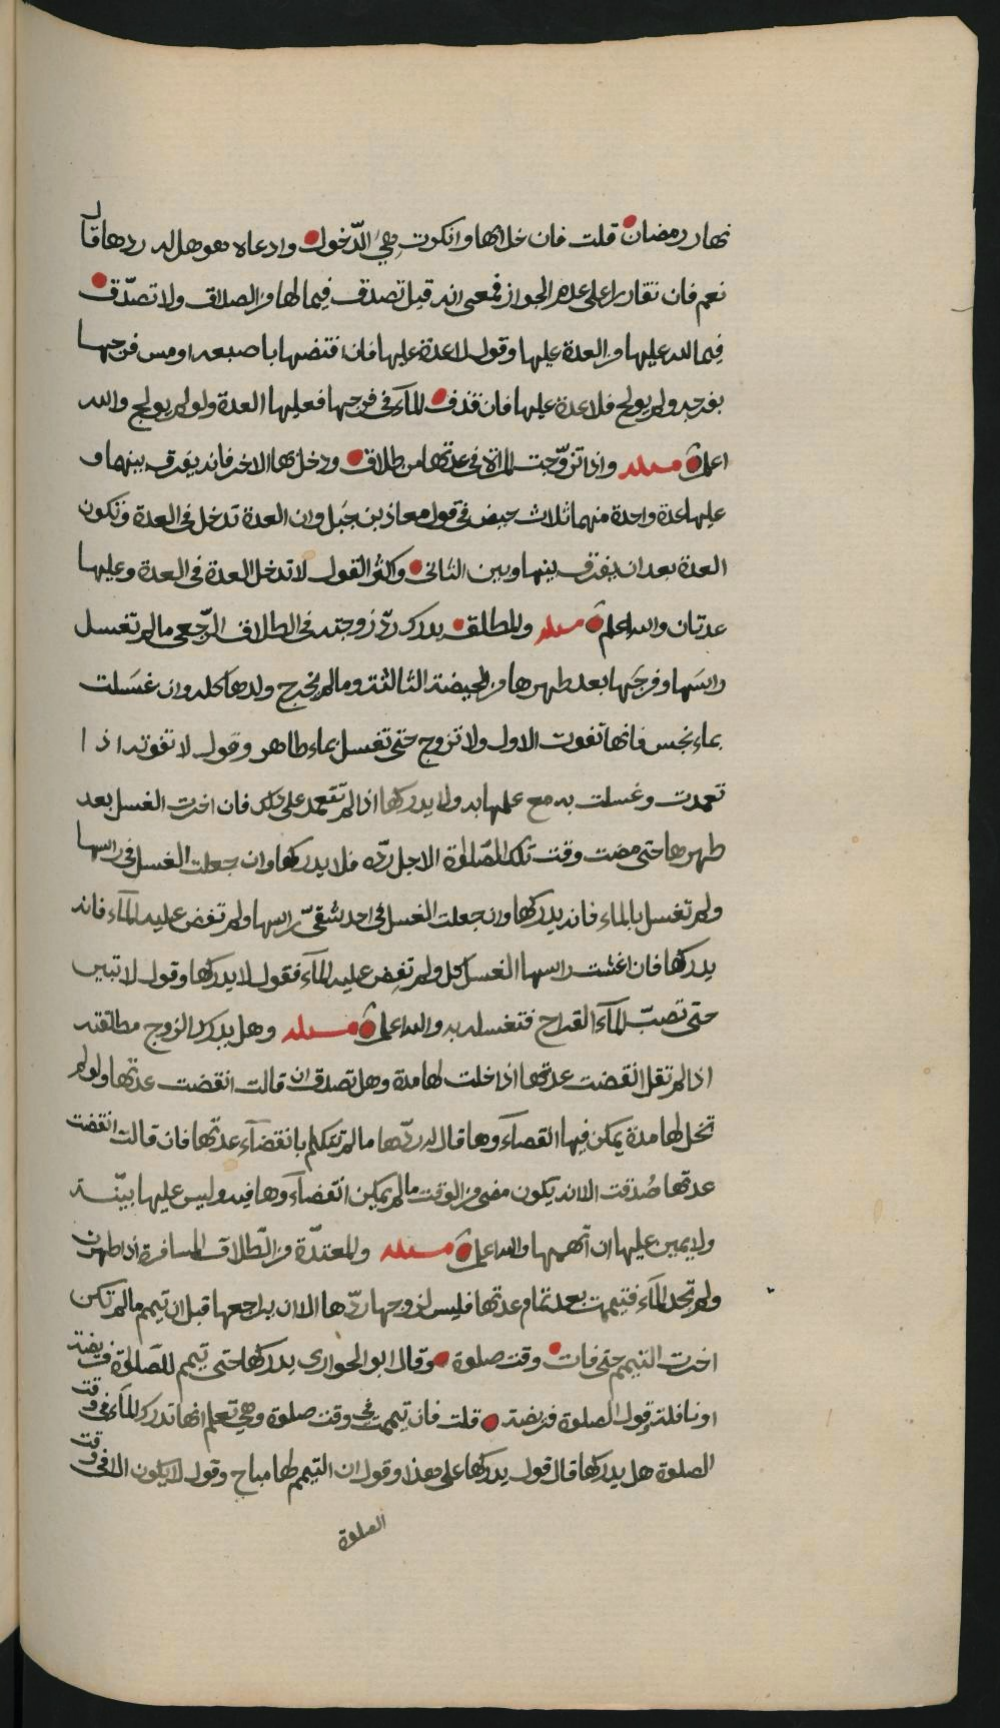 نهار رمضان قلت فان خلا بها وانكرت هي الدّخول وادعاه هو هل له ردها قال
نعم فان تقاررا على عدم الجواز فمعي انه قيل تصدق فيما لها من الصداق ولا تصدّق
فيما لله عليها من العدة عليها وقول لا عدة عليها فان افتضها باصبعه او مس فرجها
بفرجه ولم يولج فلا عدة عليها فان قذف المآء في فرجها فعليها العدة ولو لم يولج والله
اعلم مسئله واذا تزوّجت المراة في عدتها من طلاق ودخل بها الاخر فانه يفرق بينهما و
عليها عدة واحدة منهما ثلاث حيض في قول معاذ بن جبل وان العدة تدخل في العدة وتكون
العدة بعد ان يفرق بينها وبين الثاني واكثر القول لا تدخل العدة في العدة وعليها
عدتان والله اعلم مسئله وللمطلق يدرك ردّ زوجته في الطلاق الرّجعي ما لم تغسل
راسها وفرجها بعد طهرها من الحيضة الثالثة وما لم يخرج ولدها كله وان غسلت
بماء نجس فانها تفوت الاول ولا تزوج حتى تغسل بماء طاهر وقول لا تفوته اذا
تعمدت وغسلت به مع علمها به ولا يدركها اذا لم تتعمد على ذلك فان اخرت الغسل بعد
طهرها حتى مضت وقت تلك الصّلوة لاجل ردّه فلا يدركها وان جعلت الغسل في راسها
ولم تغسل بالماء فانه يدركها وان جعلت الغسل في احد شقيّ راسها ولم تفض عليه المآء فانه
يدركها فان اغشت راسها الغسل كل ولم تفض عليه المآء فقول لا يدركها وقول لا تبين
حتى تصبّ المآء القراح فتغسله به والله اعلم مسئله وهل يدرك الزوج مطلقته
اذا لم تقل انقضت عدتها اذا خلت لها مدة وهل تصدق ان قالت انقضت عدتها ولو لم
تخل لها مدة يمكن فيها انقضاؤها قال له ردّها ما لم تتكلم بانقضآء عدتها فان قالت انقضت
عدتها صُدقت الا انه يكون مضى من الوقت ما لم يمكن انقضآؤها فيه وليس عليها بيّنة
ولا يمين عليها ان اتهمها والله اعلم مسئله والمعتدّة من الطّلاق المسافرة اذا طهرت
ولم تجد المآء فتيممت بعد تمام عدتها فليس لزوجها ردّها الا ان يراجعها قبل ان تيمم ما لم تكن
اخرت التيمم حتى فات وقت صلوة وقال ابو الحواري يدركها حتى تيمم للصّلوة فريضة
او نافلة وقول الصلوة فريضة قلت فان تيممت في وقت صلوة وهي تعلم انها تدرك المآء في وقت
الصلوة هل يدركها قال قول يدركها على هذا وقول ان التيمم لها مباح وقول لا يكون الا في وقت
الصلوة